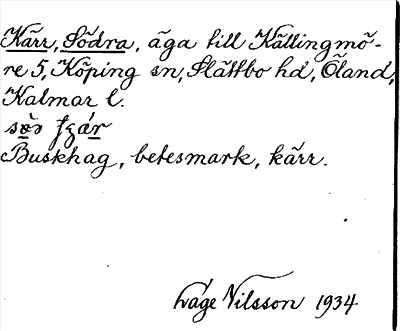 Kärr, Södra, äga till Källingmö-
re 5, Köping sn, Slättbo hd, Öland,
Kalmar l.
Buskhag, betesmark, kärr.
Wåge Nilsson 1934